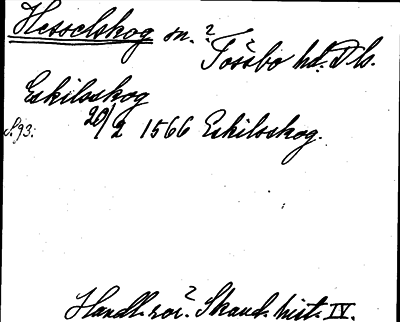 Hesselskog sn.? Tössbo hd. Dls.
Eskilsskog
S. 93. 20/2 1566 Eskilsskog.
Handl. rör? Skand. hist. IV.